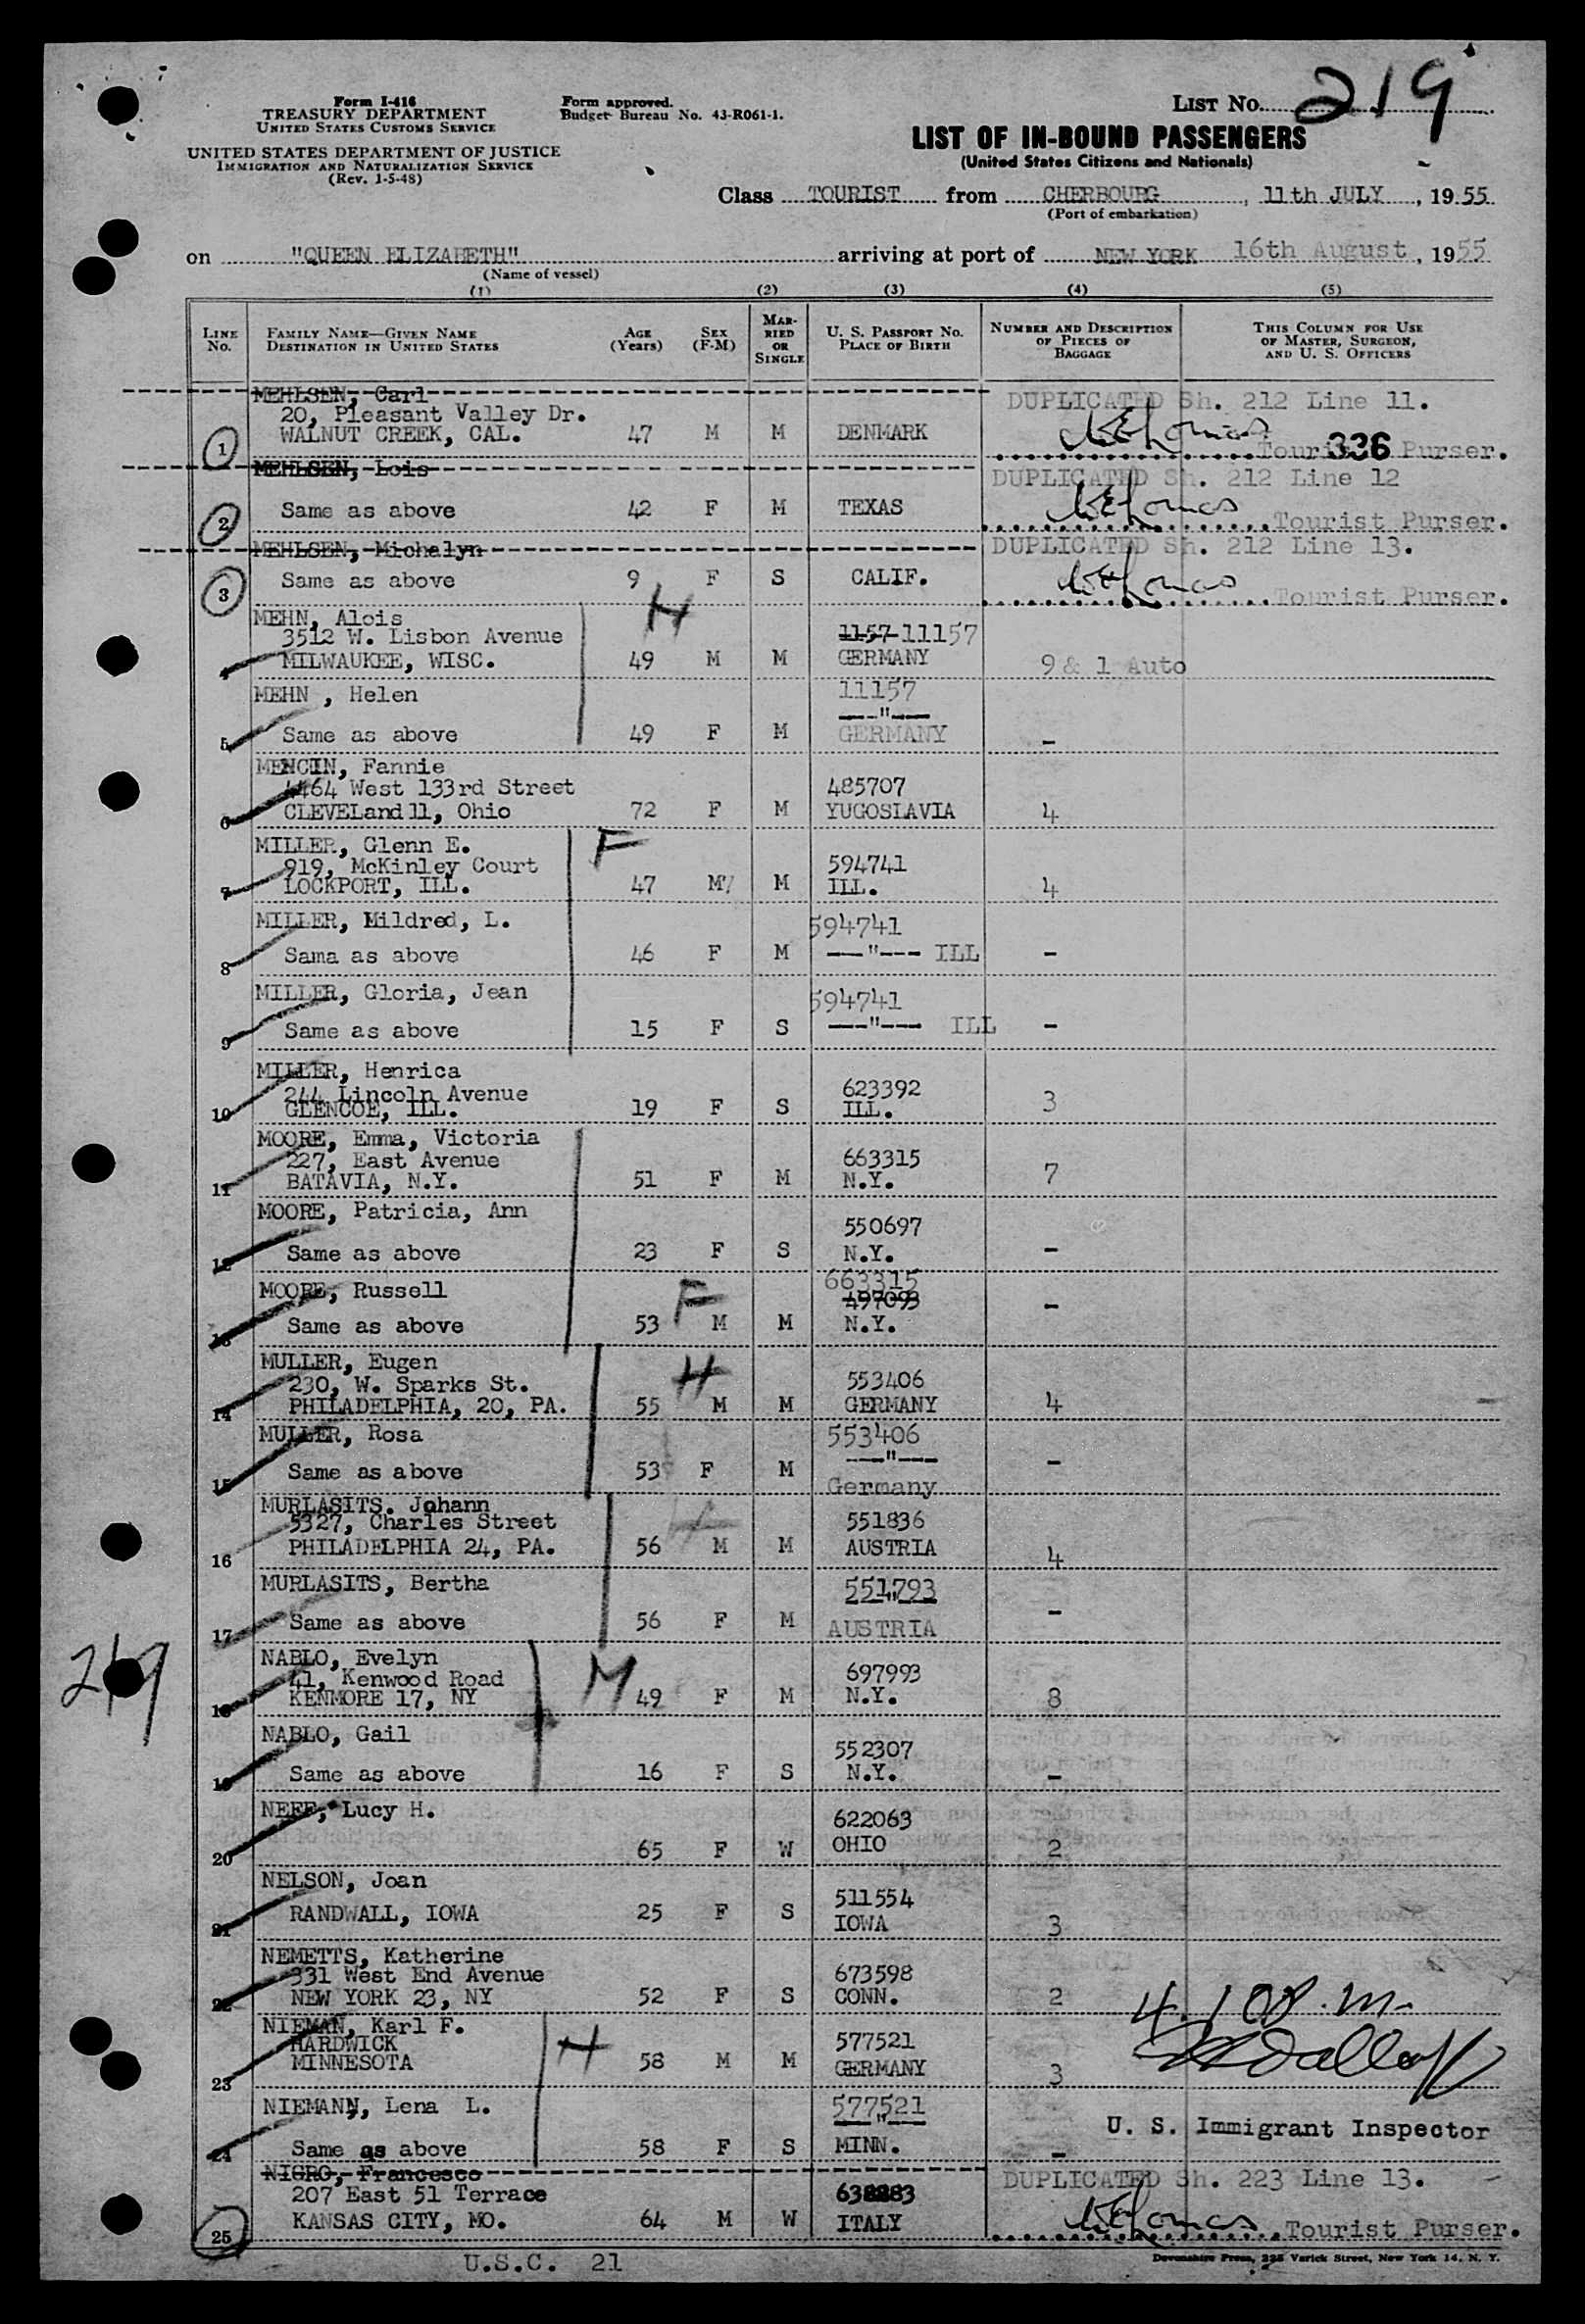 LIST NO. 219
Form I-416
TREASURY DEPARTMENT
UNITED STATES CUSTOMS SERVICE
UNITED STATES DEPARTMENT OF JUSTICE
IMMIGRATION AND NATURALIZATION SERVICE
(Rev. 1-5-48)
Form approved.
Budget Bureau No. 43-R061-1.
LIST OF IN-BOUND PASSENGERS
(United States Citizens and Nationals)
Class TOURIST from CHERBOURG, 11th JULY, 1955
(Port of embarkation)
on "QUEEN ELIZABETH" arriving at port of NEW YORK 16th August, 1955
(Name of vessel)
(1) (2) (3) (4) (5)
LINE NO. FAMILY NAME—GIVEN NAME DESTINATION IN UNITED STATES AGE (Years) SEX (F-M) MARRIED OR SINGLE U. S. PASSPORT NO. PLACE OF BIRTH NUMBER AND DESCRIPTION OF PIECES OF BAGGAGE THIS COLUMN FOR USE OF MASTER, SURGEON, AND U. S. OFFICERS
MEHLSEN, Carl DUPLICATED Sh. 212 Line 11.
20, Pleasant Valley Dr.
1 WALNUT CREEK, CAL. 47 M M DENMARK
336 Tourist Purser.
MEHLSEN, Lois DUPLICATED Sh. 212 Line 12
2 Same as above 42 F M TEXAS
Tourist Purser.
MEHLSEN, Michalyn DUPLICATED Sh. 212 Line 13.
3 Same as above 9 F S CALIF.
Tourist Purser.
MEHN, Alois H
3512 W. Lisbon Avenue 1157 11157
4 MILWAUKEE, WISC. 49 M M GERMANY 9 & 1 Auto
MEHN , Helen 11157
---"---
5 Same as above 49 F M GERMANY -
MENCIN, Fannie
4464 West 133rd Street 485707
6 CLEVELand 11, Ohio 72 F M YUGOSLAVIA 4
MILLER, Glenn E. F
919, McKinley Court 594741
7 LOCKPORT, ILL. 47 M M ILL. 4
MILLER, Mildred, L. 594741
8 Sama as above 46 F M ---"--- ILL -
MILLER, Gloria, Jean 594741
9 Same as above 15 F S ---"--- ILL -
MILLER, Henrica
244 Lincoln Avenue 623392
10 GLENCOE, ILL. 19 F S ILL. 3
MOORE, Emma, Victoria
227, East Avenue 663315
11 BATAVIA, N.Y. 51 F M N.Y. 7
MOORE, Patricia, Ann 550697
12 Same as above 23 F S N.Y. -
663315
MOORE, Russell F 497093 -
13 Same as above 53 M M N.Y.
MULLER, Eugen H
230, W. Sparks St. 553406
14 PHILADELPHIA, 20, PA. 55 M M GERMANY 4
MULLER, Rosa 553406
---"---
15 Same as above 53 F M Germany -
MURLASITS. Johann H
5327, Charles Street 551836
16 PHILADELPHIA 24, PA. 56 M M AUSTRIA 4
MURLASITS, Bertha 551793
17 Same as above 56 F M AUSTRIA -
219
NABLO, Evelyn M
41, Kenwood Road 697993
18 KENMORE 17, NY 49 F M N.Y. 8
NABLO, Gail 552307
19 Same as above 16 F S N.Y. -
NEFF, Lucy H. 622063
20 65 F W OHIO 2
NELSON, Joan 511554
21 RANDWALL, IOWA 25 F S IOWA 3
NEMETTS, Katherine
331 West End Avenue 673598
22 NEW YORK 23, NY 52 F S CONN. 2
NIEMAN, Karl F. H
HARDWICK 577521
23 MINNESOTA 58 M M GERMANY 3
NIEMANN, Lena L. 577521
U. S. Immigrant Inspector
24 Same as above 58 F S MINN. -
NIGRO, Francesco DUPLICATED Sh. 223 Line 13.
207 East 51 Terrace
25 KANSAS CITY, MO. 64 M W ITALY
Tourist Purser.
U.S.C. 21
Devonshire Press, 225 Varick Street, New York 14, N. Y.